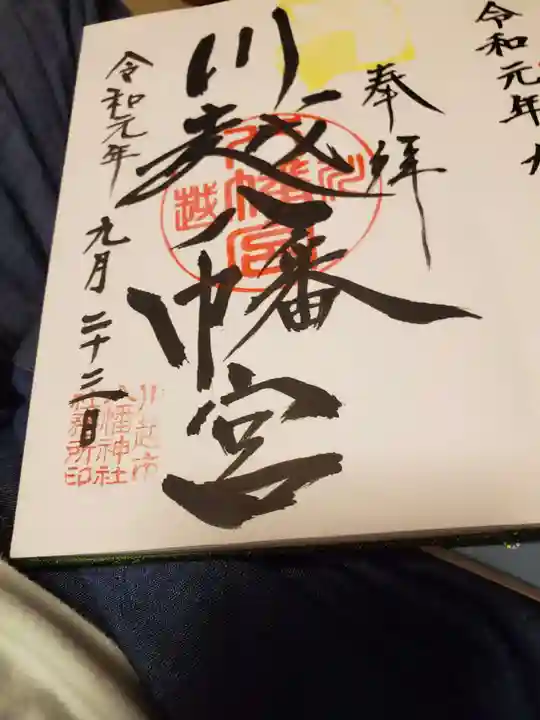 令和元年九
奉拝
川越八幡宮
川越
八幡宮
令和元年九月二十三日
川越市
八幡神社
社務所印